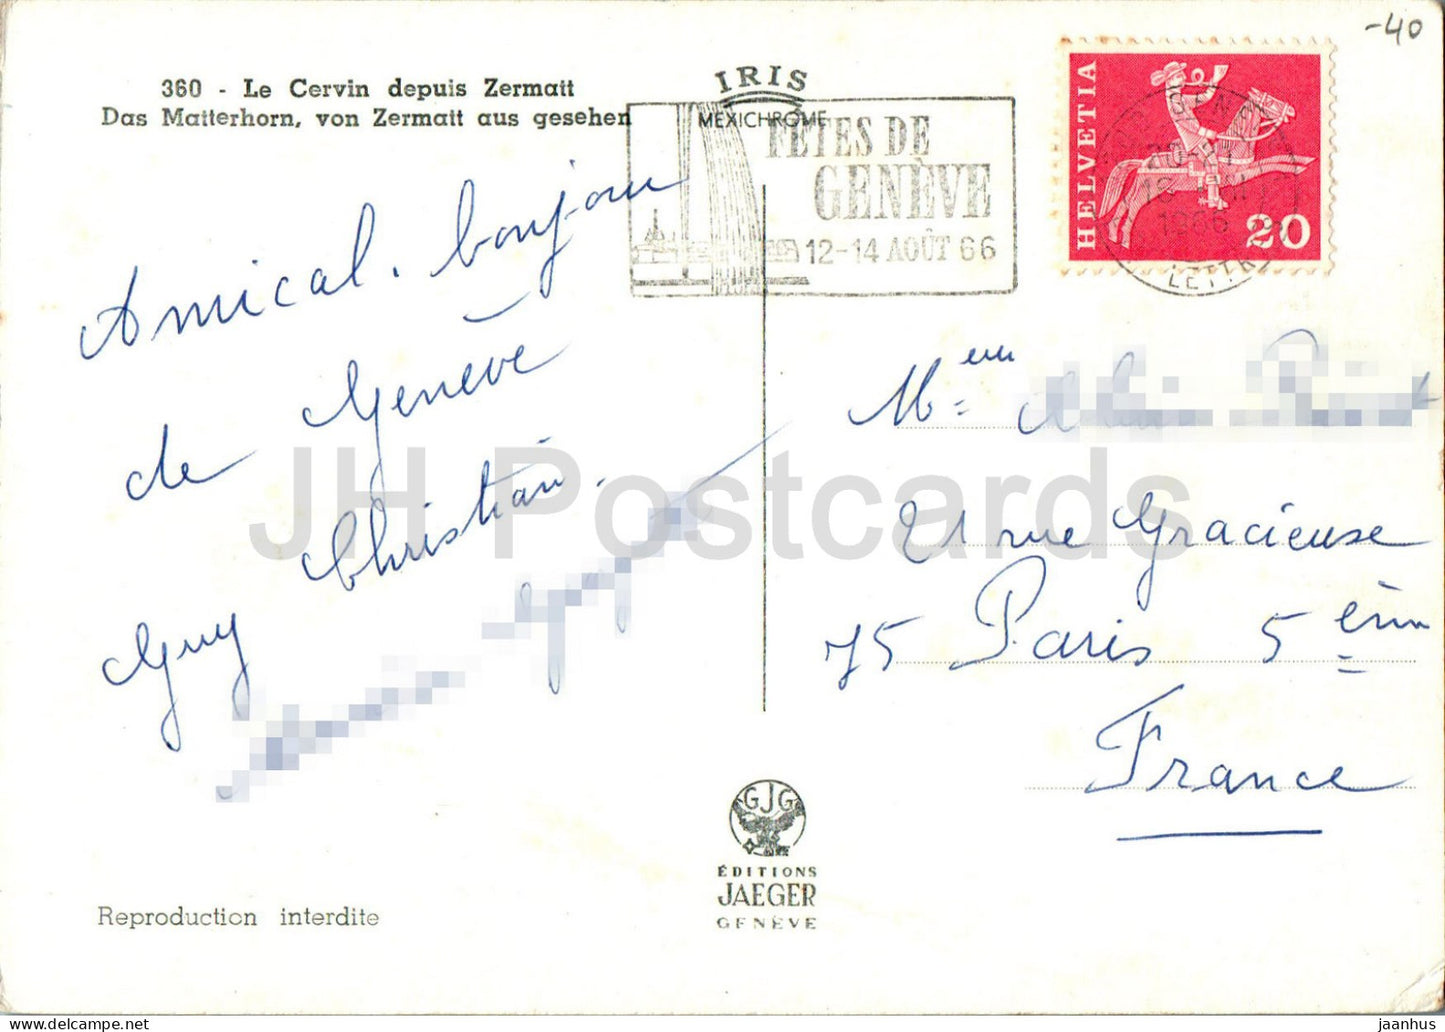 -40
360 - Le Cervin depuis Zermatt
Das Matterhorn, von Zermatt aus gesehen
IRIS
MEXICHROME
FÊTES DE
GENÈVE
12-14 AOÛT 66
HELVETIA
20
20-21
1966
LETTR
Amical. bonjour
de Genève
Guy Christian.
JH Postcards
Mme
21 rue Gracieuse
75 Paris 5 ème
France
GJG
ÉDITIONS
JAEGER
GENÈVE
Reproduction interdite
jaanhus
www.delcampe.net